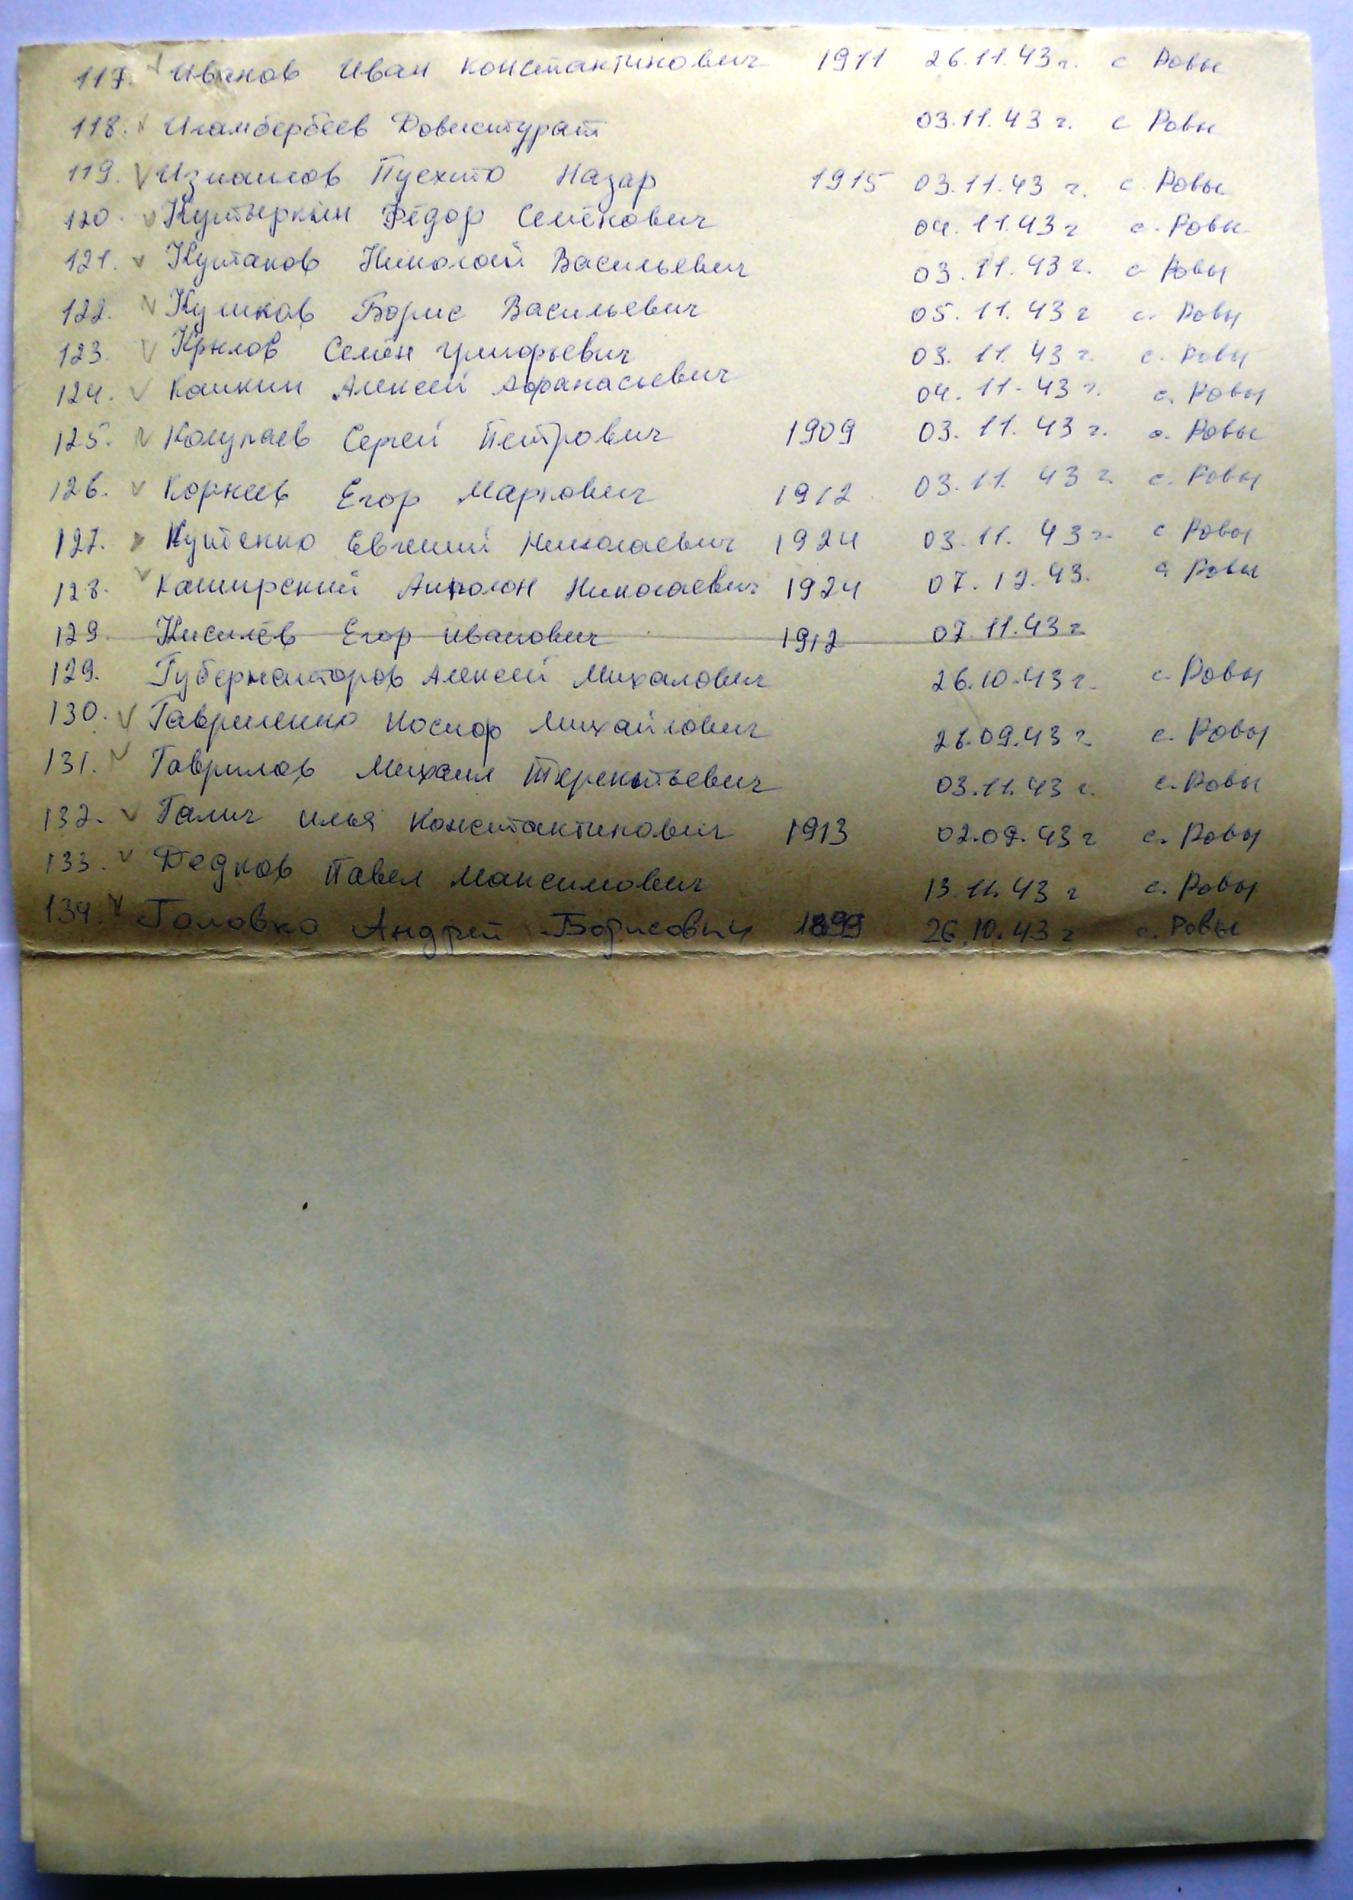 117. Иванов Иван Константинович 1911 26.11.43 г. с Ровы
118. Игамбербеев 03.11.43 г. с Ровы
119. Назар 1915 03.11.43 г. с. Ровы
120. Кутыркин Фёдор Семёнович 04.11.43 г с. Ровы
121. Култаков Николай Васильевич 03.11.43 г. с Ровы
122. Кушков Борис Васильевич 05.11.43 г с. Ровы
123. Крылов Семён Григорьевич 03.11.43 г. с. Ровы
124. Кашкин Алексей Афанасьевич 04.11.43 г. с. Ровы
125. Колупаев Сергей Петрович 1909 03.11.43 г. с. Ровы
126. Корнеев Егор Маркович 1912 03.11.43 г. с. Ровы
127. Куценко Евгений Николаевич 1924 03.11.43 г. с Ровы
128. Каширский Николаевич 1924 07.12.43. с Ровы
129 Киселёв Егор Иванович 1912 07.11.43 г
129. Губернаторов Алексей Михалович 26.10.43 г. с. Ровы
130. Гавриленко Иосиф Михайлович 26.09.43 г. с. Ровы
131. Гаврилов Михаил Терентьевич 03.11.43 г. с. Ровы
132. Галич Илья Константинович 1913 02.09.43 г с. Ровы
133. Дедков Павел Максимович 13.11.43 г с. Ровы
134. Головко Андрей Борисович 1899 26.10.43 г с. Ровы